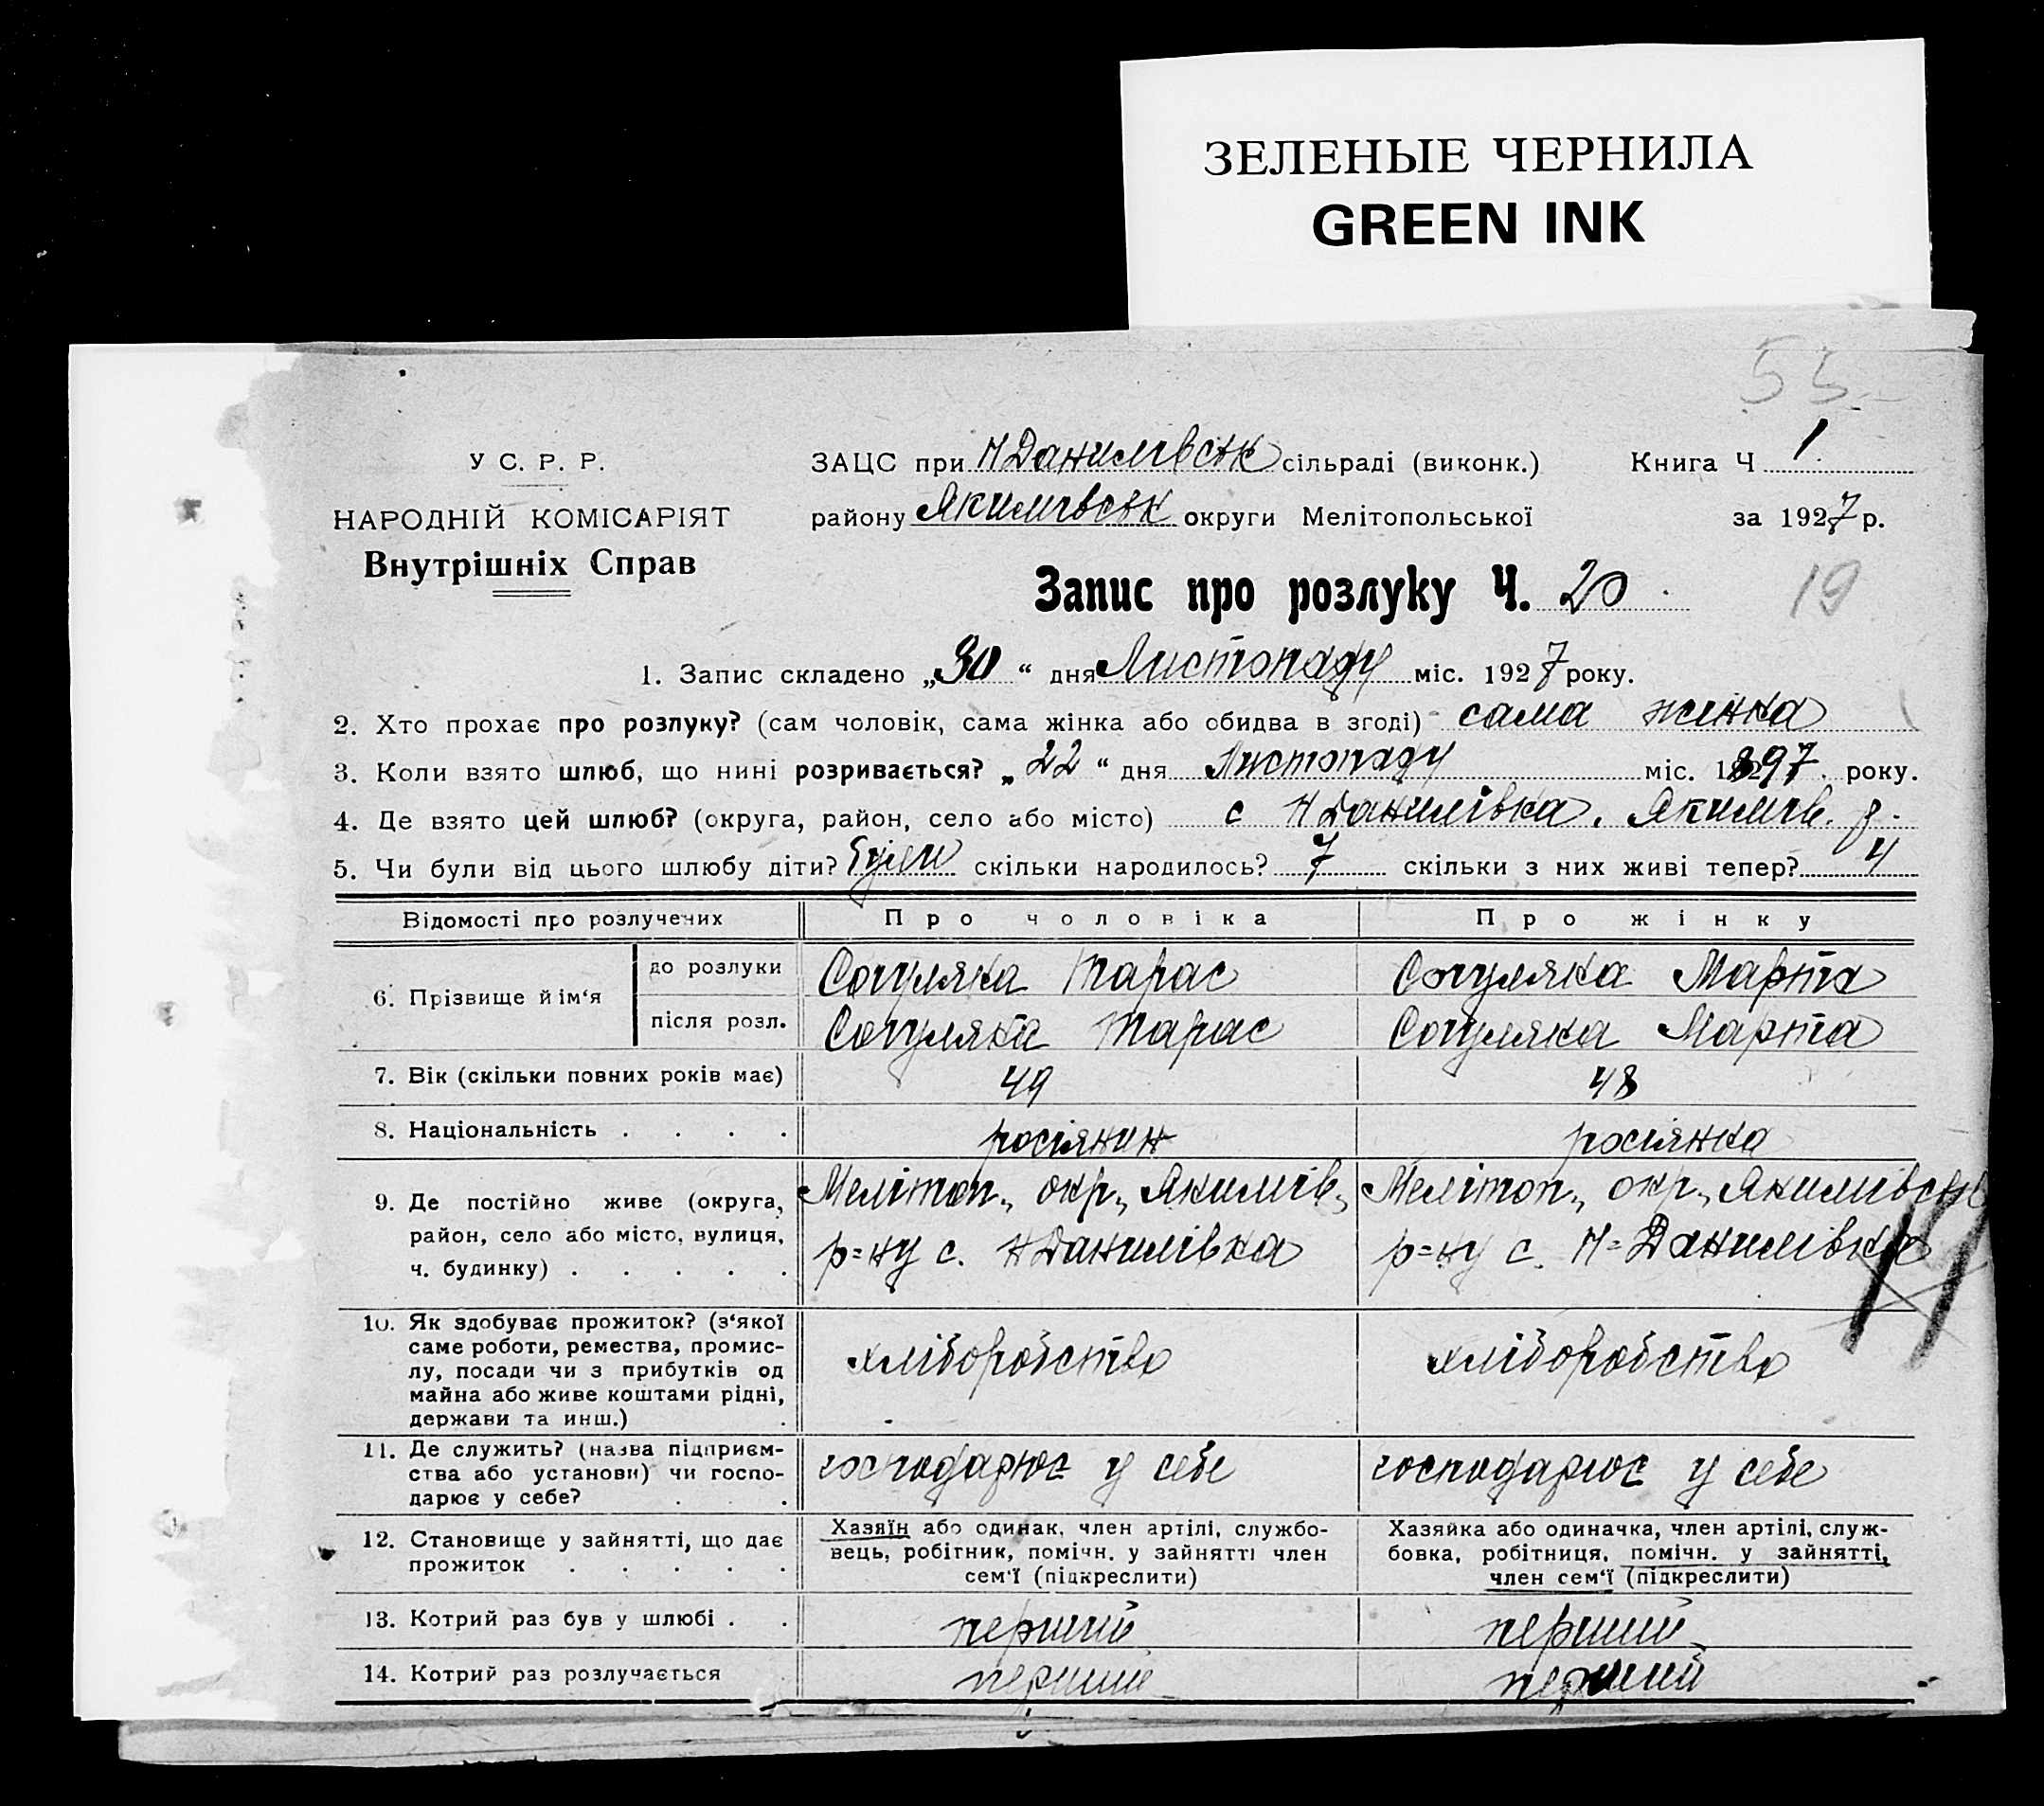 ЗЕЛЕНЫЕ ЧЕРНИЛА
GREEN INK
55
У С. Р. Р.
НАРОДНІЙ КОМІСАРІЯТ
Внутрішніх Справ
ЗАЦС при Н Данилівськ сільраді (виконк.)
Книга Ч 1
району Якимівськ округи Мелітопольської
за 1927 р.
Запис про розлуку Ч. 20
19
1. Запис складено „30“ дня Листопаду міс. 1927 року.
2. Хто прохає про розлуку? (сам чоловік, сама жінка або обидва в згоді) сама жінка
3. Коли взято шлюб, що нині розривається? „22“ дня Листопаду міс. 1897 року.
4. Де взято цей шлюб? (округа, район, село або місто) с Н Данилівка. Якимів. р.
5. Чи були від цього шлюбу діти? Були скільки народилось? 7 скільки з них живі тепер? 4
Відомості про розлучених
Про чоловіка
Про жінку
6. Прізвище й ім‘я
до розлуки
Согуляка Тарас
Согуляка Марта
після розл.
Согуляка Тарас
Согуляка Марта
7. Вік (скільки повних років має)
49
48
8. Національність . . . .
росіянин
росіянка
9. Де постійно живе (округа,
район, село або місто, вулиця,
ч. будинку) . . . . .
Меліто​п., окр., Якимів.,
р=ну с. Н Данилівка
Мелітоп., окр., Якимівськ
р=ну с. Н=Данилівка
10. Як здобуває прожиток? (з‘якої
саме роботи, ремества, промис-
лу, посади чи з прибутків од
майна або живе коштами рідні,
держави та инш.) .
хліборобство
хліборобство
11. Де служить? (назва підприєм-
ства або установи) чи госпо-
дарює у себе? . .
господарює у себе
господарює у себе
12. Становище у зайнятті, що дає
прожиток . . . . .
Хазяїн або одинак, член артілі, службо-
вець, робітник, помічн. у зайнятті член
сем‘ї (підкреслити)
Хазяйка або одиначка, член артілі, служ-
бовка, робітниця, помічн. у зайнятті,
член сем‘ї (підкреслити)
13. Котрий раз був у шлюбі . .
перший
перший
14. Котрий раз розлучається
перший
перший